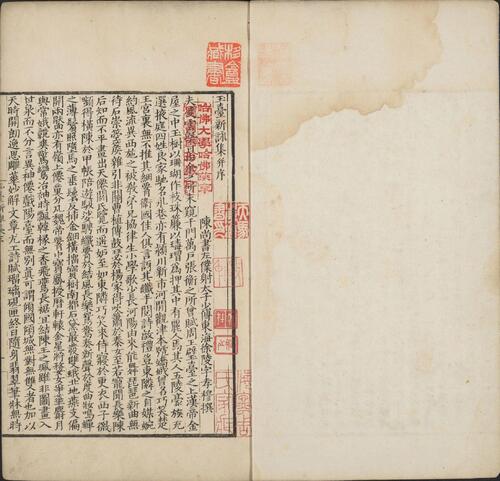 藏書
玉臺新詠集并序
陳尚書左僕射太子少傅東海徐陵字孝穆撰
夫凌雲概日由余之所未窺千門萬戶張衡之所曾賦周王璧臺之上漢帝金
屋之中玉樹以珊瑚作枝珠簾以瑇瑁爲押其中有麗人焉其人五陵豪族充
選掖庭四姓良家馳名永巷亦有潁川新市河間觀津本號嬌娥曾名巧笑楚
王宮裏無不推其細腰衛國佳人俱言訝其纖手閱詩敦禮豈東鄰之自媒婉
約風流異西施之被教弟兄協律生小學歌少長河陽由來能舞琵琶新曲無
待石崇箜篌雜引非關曹植傳鼓瑟於楊家得吹簫於秦女至若寵聞長樂陳
后知而不平畫出天僊閼氏覽而遙妬至如東鄰巧笑來侍寢於更衣西子微
顰得橫陳於甲帳陪遊馺娑騁纖腰於結風長樂鴛鴦奏新聲於度曲妝鳴蟬
之薄鬢照墮馬之垂鬟反插金鈿橫抽寶樹南都石黛最發雙蛾北地燕支偏
開兩靨亦有嶺上僊童分丸魏帝腰中寶鳳授曆軒轅金星將婺女爭華麝月
與嫦娥競爽驚鸞冶袖時飄韓掾之香飛燕長裾宜結陳王之珮雖非圖畫入
甘泉而不分言異神僊戲陽臺而無別真可謂傾國傾城無對無雙者也加以
天時開朗逸思雕華妙解文章尤工詩賦瑠璃硯匣終日隨身翡翠筆牀無時
哈佛大學哈佛燕京